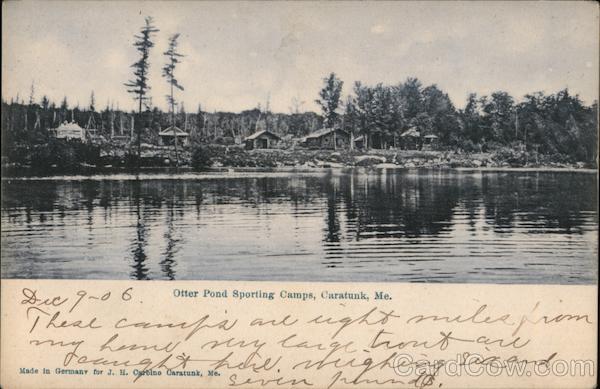 Otter Pond Sporting Camps, Caratunk, Me.
Dec 9-06
These camp's are eight miles from
my home, very large trout are
caught here. weighing six and
seven pounds.
Made in Germany for J. H. Carbino Caratunk, Me.
CardCow.com